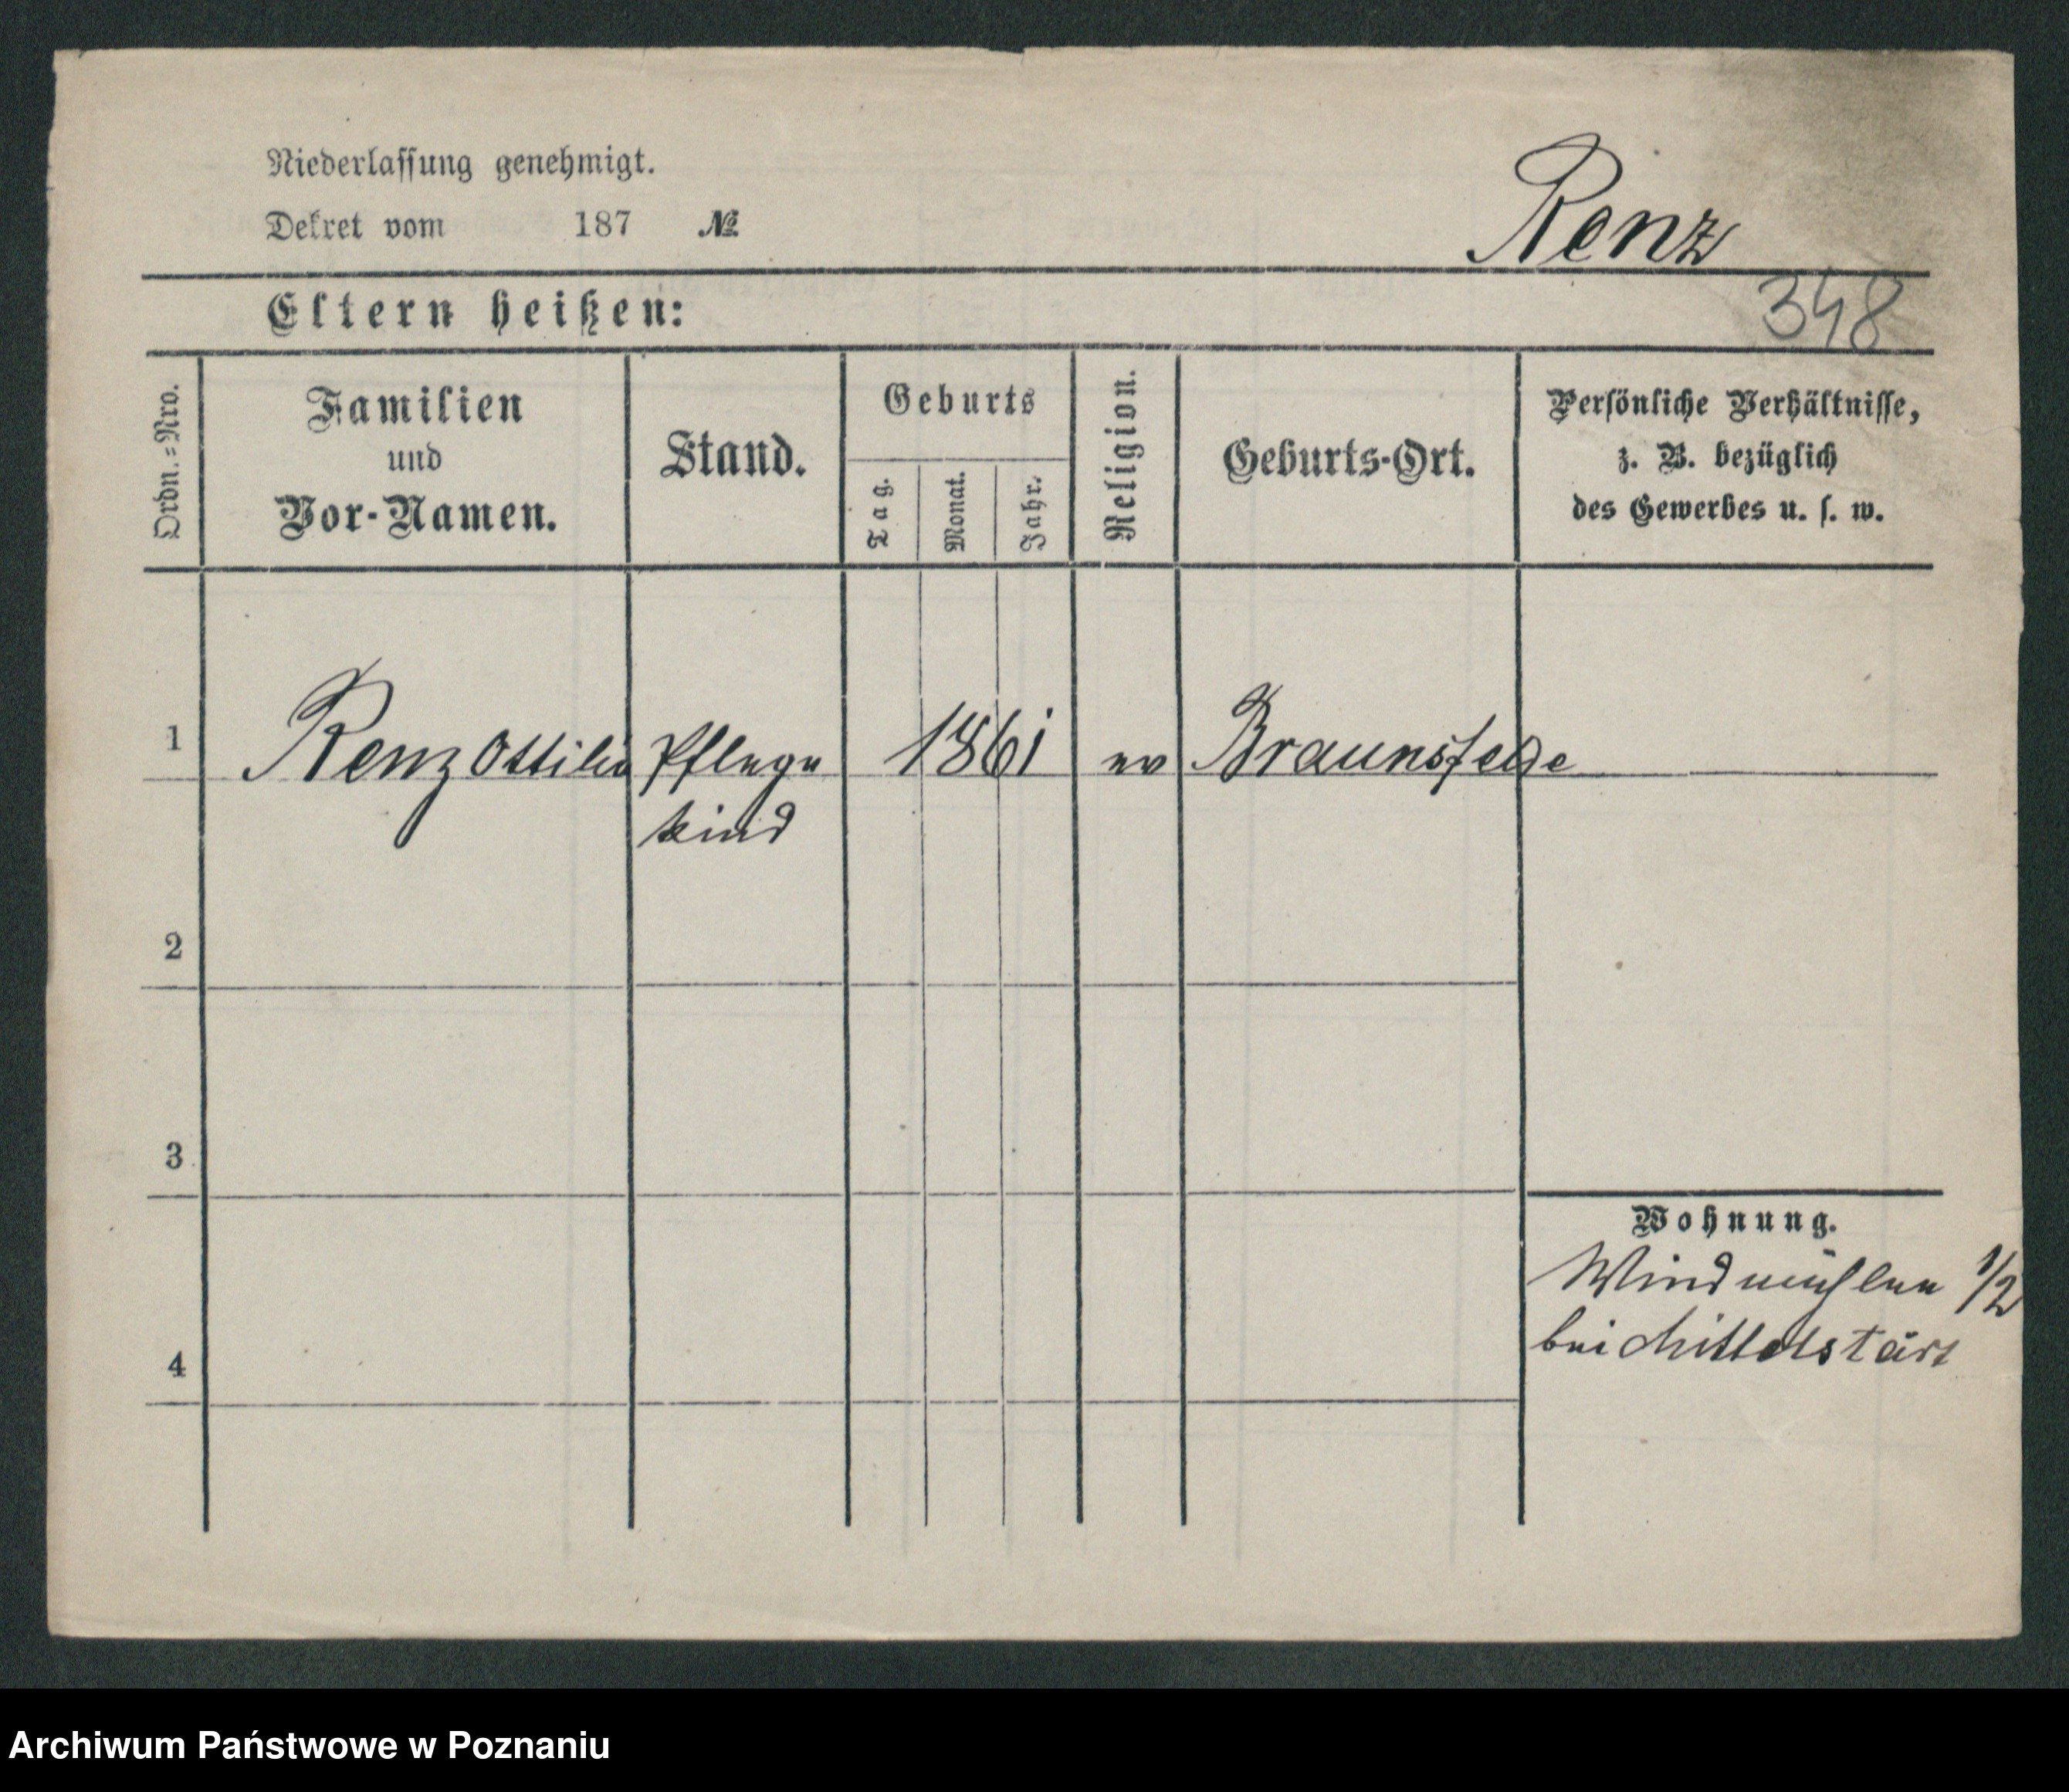 Niederlassung genehmigt.
Dekret vom 187 №
Renz
Eltern heißen:
348
Ordn.-Nro.
Familien
und
Vor-Namen.
Stand.
Geburts
Tag.
Monat.
Jahr.
Religion.
Geburts-Ort.
Persönliche Verhältnisse,
z. B. bezüglich
des Gewerbes u. s. w.
1 Renz Ottilie Pflege 1861 ev Braunsfelde
kind
2
3
Wohnung.
Windmühlen 1/2
bei
4
Archiwum Państwowe w Poznaniu